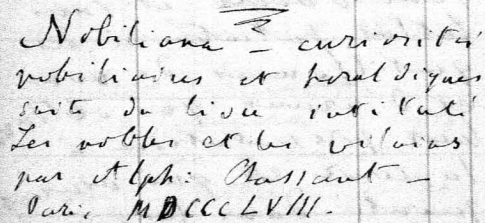 Nobiliana = curiosités
nobiliaires et héraldiques
suite du livre intitulé
Les nobles et les vilains
par Alph: Chassant —
Paris MDCCCLVIII.